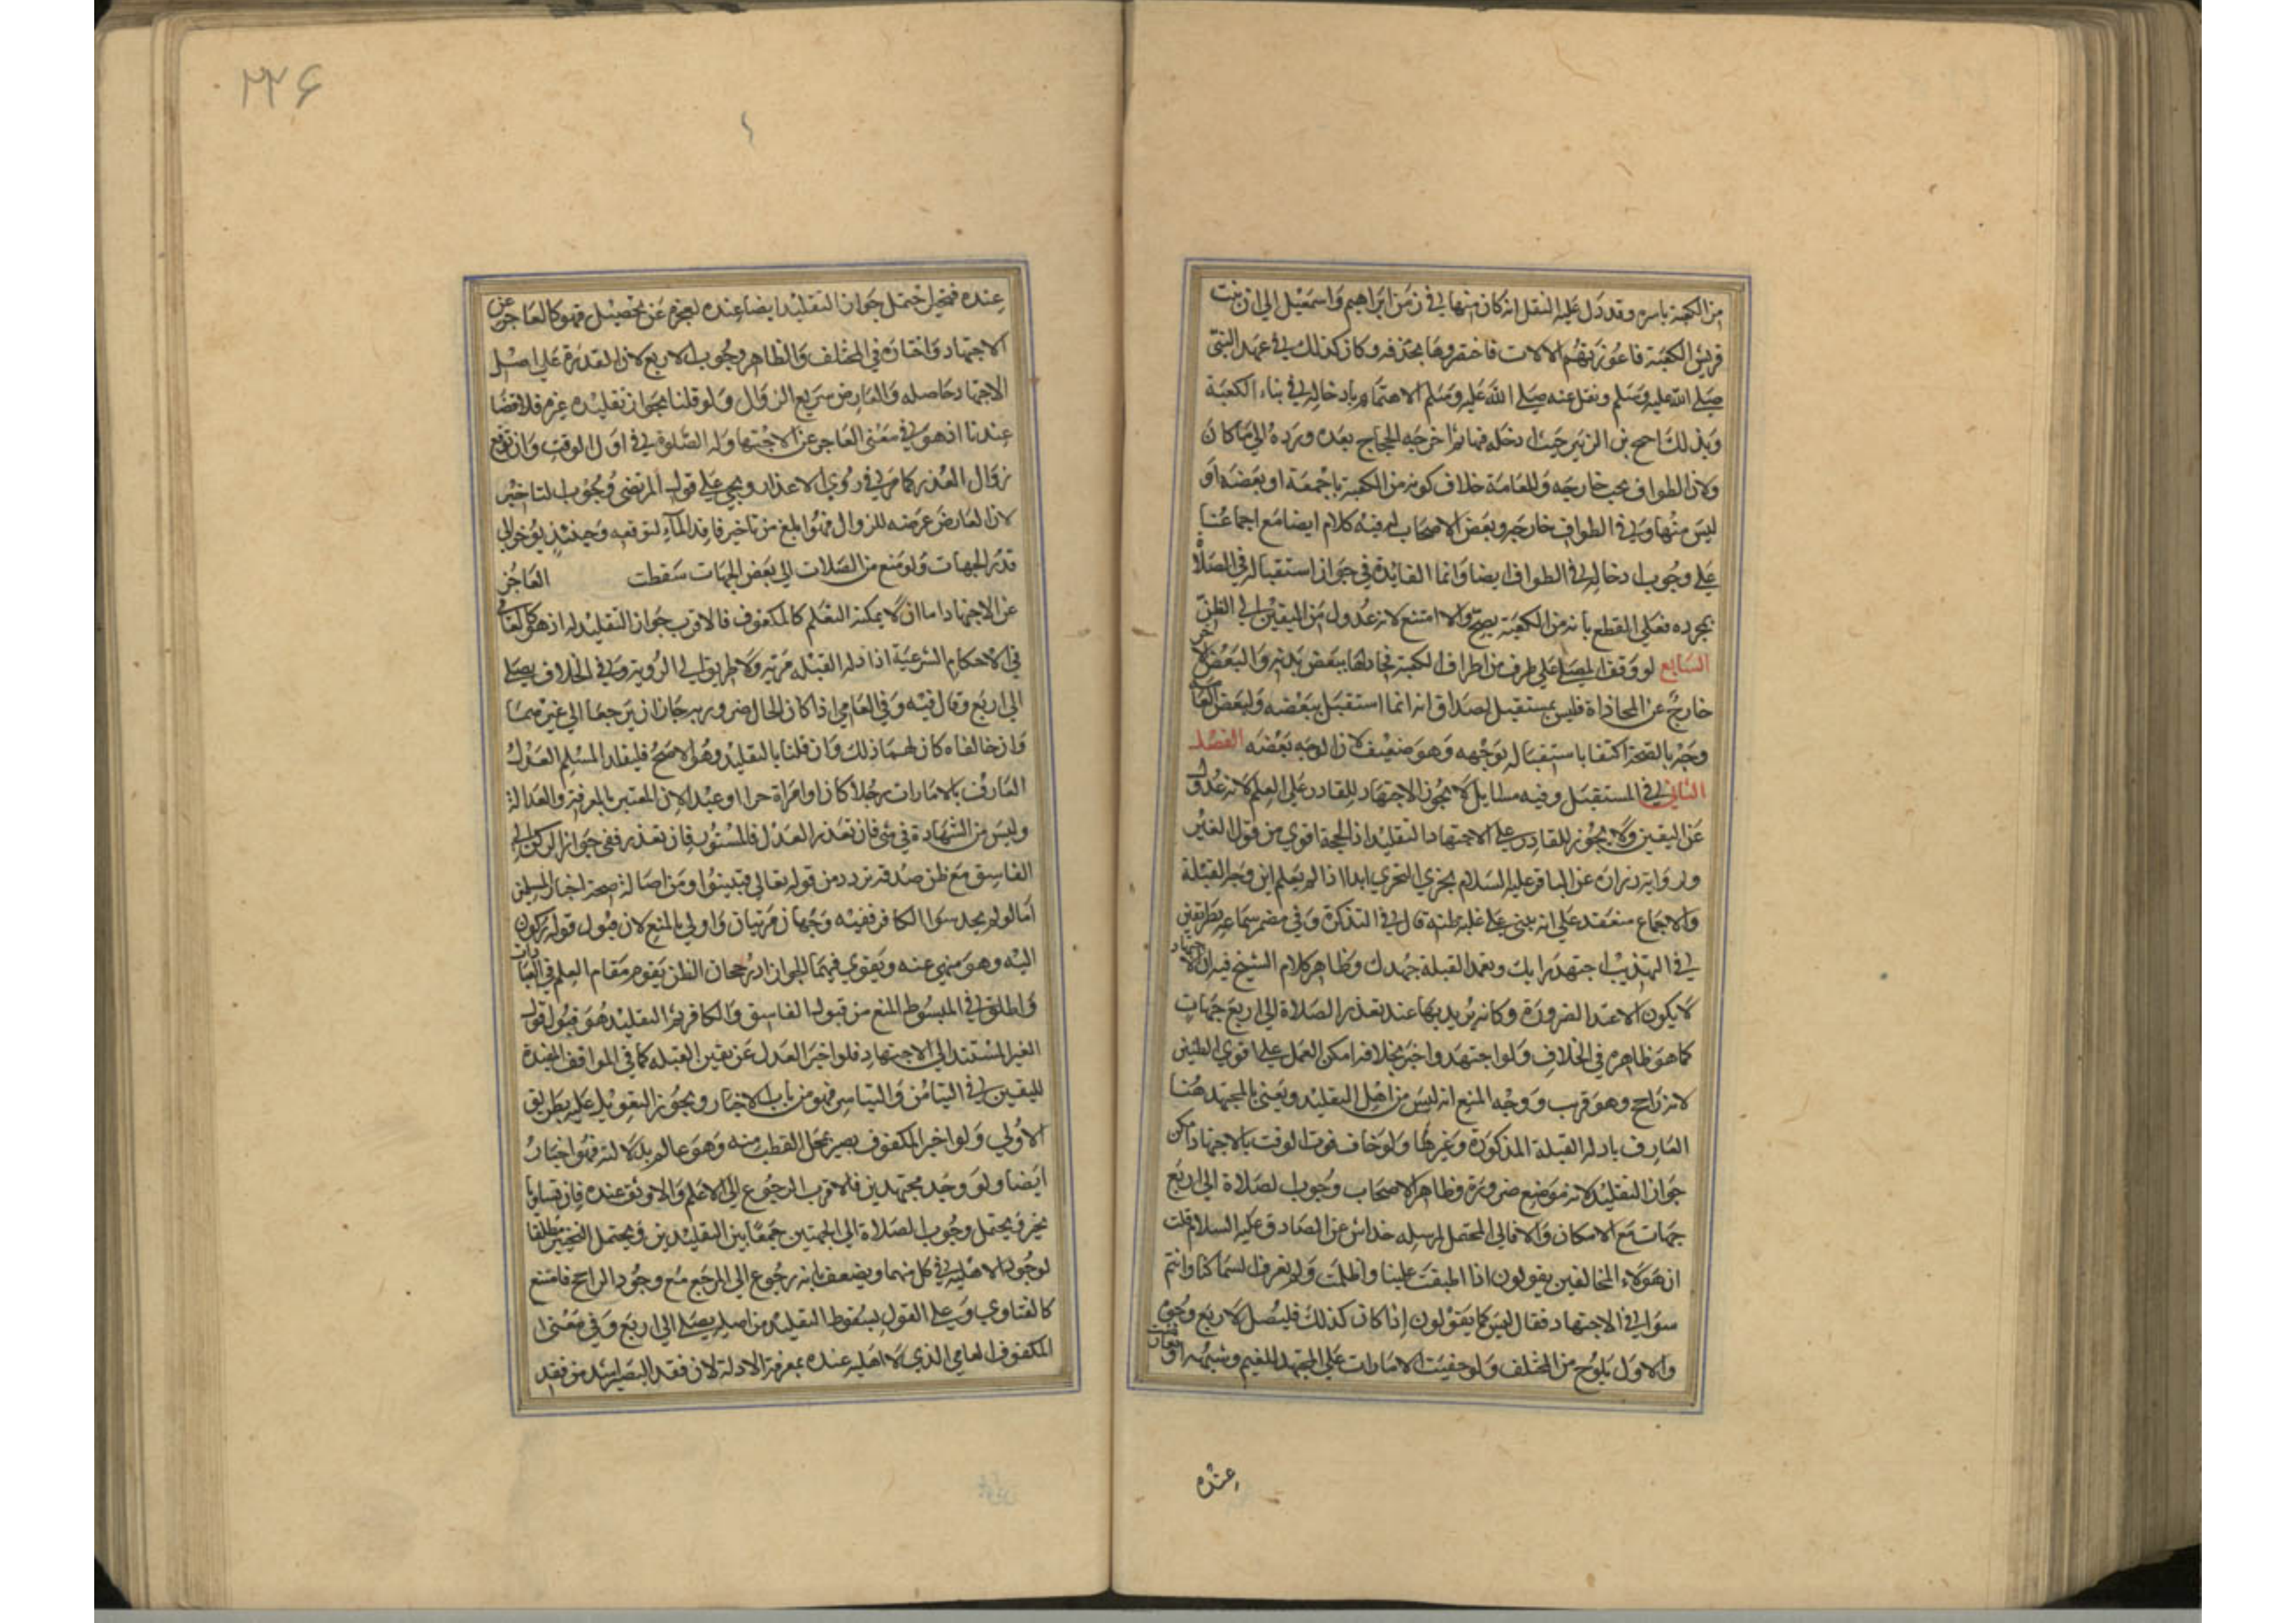 من الكعبة باسره وقد دل عليه النقل انه كان منها في زمن ابراهيم واسمعيل الي ان بنت
قريش الكعبة فاعوزتهم الالات فاختصروها بحذفه وكان كذلك في عهد النبي
صلي الله عليه وسلم ونقل عنه صلي الله عليه وسلم الاهتمام بادخاله في بناء الكعبة
وبذلك احتج بن الزبير حيث ادخله فيها ثم اخرجه الحجاج بعده ورده الي ما كان
ولان الطواف يجب خارجه وللعامة خلاف كونه من الكعبة باجمعه او بعضه او
ليس منها وفي الطواف خارجه وبعض الاصحاب له فيه كلام ايضا مع اجماعنا
علي وجوب ادخاله في الطواف ايضا وانما الفايدة في جواز استقباله في الصلاة
بمجرده فعلي القطع بانه من الكعبة يصح والا امتنع لانه عدول من اليقين الي الظن
السابع لو وقف المصلي علي طرف من اطراف الكعبة فحاذاها ببعض بدنه والبعض الاخر
خارج عن المحاذاة فليس بمستقبل لصداق انه انما استقبل ببعضه ولبعض العامة
وجه بالصحة اكتفا باستقباله بوجهه وهو ضعيف لان الوجه بعضه الفصل
الثاني في المستقبل وفيه مسايل لا يجوز الاجتهاد للقادر علي العلم لانه عدول
عن اليقين ولا يجوز للقادر علي الاجتهاد التقليد اذ الحجة اقوي من قول الغير
ولرواية زرارة عن الباقر عليه السلام يجزي التحري ابدا اذا لم يعلم اين وجه القبلة
والاجماع منعقد علي انه يبني علي غلبة ظنه قال في التذكرة وفي مضمر سماعة بطريقين
في التهذيب اجتهد رايك وتعمد القبلة جهدك وظاهر كلام الشيخ فيه ان الاجتهاد
لا يكون الا عند الضرورة وكانه يريد بها عند تعذر الصلاة الي اربع جهات
كما هو ظاهره في الخلاف ولو اجتهد واخبر بخلافه امكن العمل علي اقوي الظنين
لانه راجح وهو قرب ووجه المنع انه ليس من اهل التقليد ويعني بالمجتهد هنا
العارف بادلة القبلة المذكورة وغيرها ولو خاف فوت الوقت بالاجتهاد امكن
جواز التقليد لانه موضع ضرورة وظاهر الاصحاب وجوب الصلاة الي اربع
جهات مع الامكان والا فالي المحتمل لمرسلة خداش عن الصادق عليه السلام قلت
ان هولاء المخالفين يقولون اذا اطبقت علينا واظلمت ولم نعرف السما كنا وانتم
سوا في الاجتهاد فقال ليس كما يقولون اذا كان كذلك فليصل لاربع وجوه
والاول يلوح من المختلف ولو خفيت الامارات علي المجتهد للغيم وشبهه او تعارضت
عنده
٢٢٦
عنده فتحير احتمل جواز التقليد ايضا عنده لعجزه عن تحصيل فهو كالعاجز عن
الاجتهاد واختاره في المختلف والظاهر وجوب الاربع لان القدرة علي اصل
الاجتهاد حاصله والعارض سريع الزوال ولو قلنا بجواز تقليده غيره فلا قضا
عندنا اذ هو في معني العاجز عن الاجتهاد وله الصلوة في اول الوقت وان توقع
زوال العذر كما مر في ذوي الاعذار ويجي علي قول المرتضي وجوب التاخير
لان العارض عرضه للزوال فهو ابلغ من تاخير فاقد الماء لتوقعه وحينئذ يؤخر الي
قدر الجهات ولو منع من الصلات الي بعض الجهات سقطت العاجز
عن الاجتهاد اما ان لا يمكنه التعلم كالمكفوف فالاقرب جواز التقليد له اذ هو كالعامي
في الاحكام الشرعية اذ ادلة القبلة مرئية ولا طريق الي الروية وفي الخلاف يصلي
الي اربع وقال فيه وفي العامي اذا كان الحال ضرورة جاز ان يرجعا الي غيرهما
وان خالفاه كان لهما ذلك وان قلنا بالتقليد وهو الاصح فليقلد المسلم العدل
العارف بالامارات رجلا كان او امراة حرا او عبدا لان المعتبر المعرفة والعدالة
وليس من الشهادة في شي فان تعذر العدل فالمستور فان تعذر ففي جواز الركون الي
الفاسق مع ظن صدقه تردد من قوله تعالي فتبينوا ومن اصالة صحة اخبار المسلمين
اما لو لم يجد سوا الكافر ففيه وجهان مرتبان واولي بالمنع لان قبول قوله ركون
اليه وهو منهي عنه ويقوي فيهما الجواز اذ رجحان الظن يقوم مقام العلم في العبادات
واطلق في المبسوط المنع من قبول الفاسق والكافر ثم التقليد هو قبول قول
الغير المستند الي الاجتهاد فلو اخبر العدل عن يقين القبلة كما في المواقف المفيدة
لليقين في التيامن والتياسر فهو من باب الاخبار ويجوز التعويل عليه بطريق
الاولي ولو اخبر المكفوف بصير بمحل القطب منه وهو عالم بدلالته فهو اخبار
ايضا ولو وجد مجتهدين فالاقرب الرجوع الي الاعلم والاوثق عنده فان تساويا
تخير ويحتمل وجوب الصلاة الي الجهتين جمعا بين التقليدين ويحتمل التخيير مطلقا
لوجود الاهلية في كل منهما ويضعف بانه رجوع الي المرجع مع وجود الراجح فامتنع
كالفتاوي وعلي القول بسقوط التقليد من اصله يصلي الي اربع وفي معني
المكفوف العامي الذي لا اهلية عنده بمعرفة الادلة لان فقد البصيرة اشد من فقد